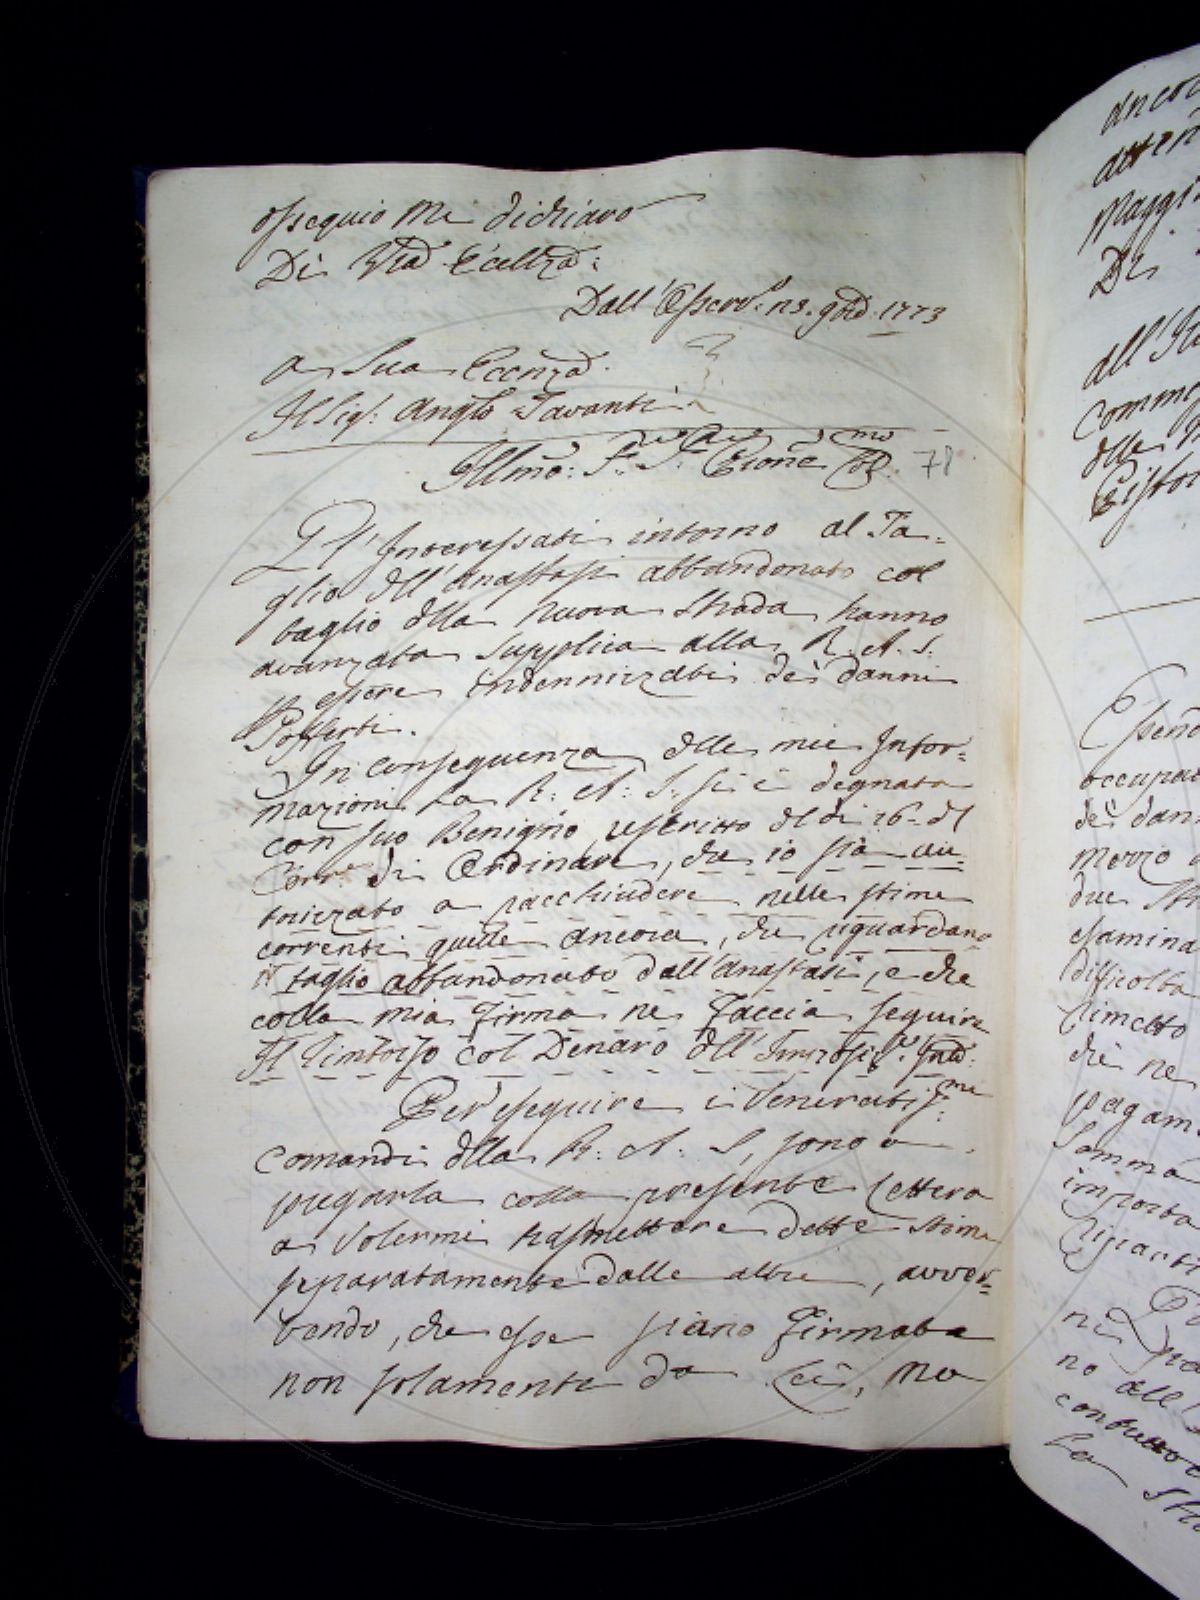 ossequio me dichiaro
Di Vra Eccellza:
Dall'Osserv. 23. 9bre 1773
a Sua Eccnza
Il Sig: Anglo Tavanti
Illmo:
78
Gl'Interessati intorno al Ta=
glio dell'Anastasi abbandonato col
taglio della nuova Strada hanno
avanzata supplica alla R. A. S.
p essere Indennizzati dei danni
Sofferti.
In conseguenza delle mie Infor=
mazioni La R: A: S: si è degnata
con suo Benigno rescritto del dì 16 del
Corre di Ordinare, che io sia au=
torizzato a racchiudere nelle stime
correnti quelle ancora, che riguardano
il taglio abbandonato dall'Anastasi, e che
colla mia firma ne faccia seguire
Il rimborso col Denaro dell'
Per eseguire i Veneratiss:mi
comandi della R: A: S, sono a
pregarla colla presente Lettera
a Volermi trasmettere dette stime
separatamente dalle altre, avver=
tendo, che esse siano firmate
non solamente da Lei, ma
ancor
Maggi
De
all'
comm
delle
occupa
dei dan
mezzo
due
esamina
difficolta
rimetto
che ne
pagam
Somma
importa
riparti
no all'
contutto
La